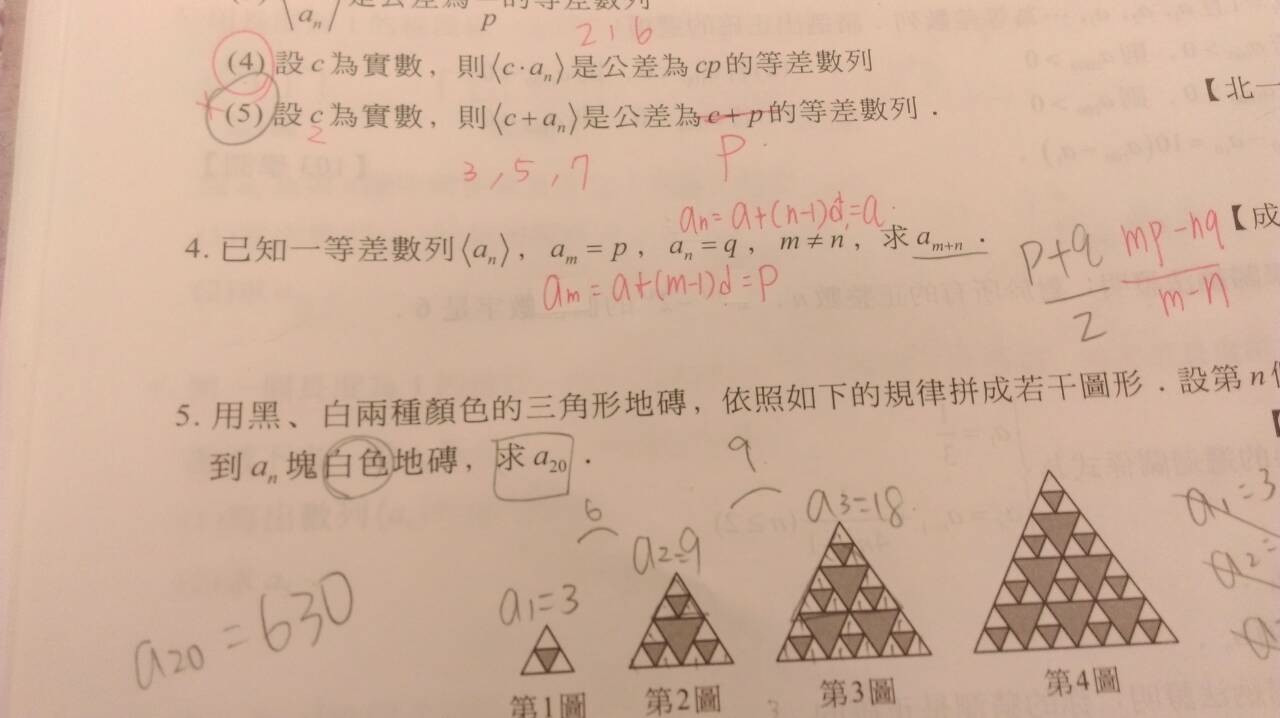 ⟨ / aₙ⟩是公差為 /p 的等差數列
2, 6
(4) 設 c 為實數，則⟨c·aₙ⟩是公差為 cp 的等差數列
(5) 設 c 為實數，則⟨c+aₙ⟩是公差為 c+p 的等差數列．
【北一
2
3, 5, 7
p
aₙ=a+(n-1)d=q
4. 已知一等差數列⟨aₙ⟩，aₘ=p，aₙ=q，m≠n，求 aₘ₊ₙ．
【成
aₘ=a+(m-1)d=p
p+q/2
mp-nq/m-n
5. 用黑、白兩種顏色的三角形地磚，依照如下的規律拼成若干圖形．設第 n 個
到 aₙ 塊白色地磚，求 a₂₀．
6
9
a₁=3
a₂=9
a₃=18
a₁=3
a₂=
a₂₀=630
第1圖
第2圖
第3圖
第4圖